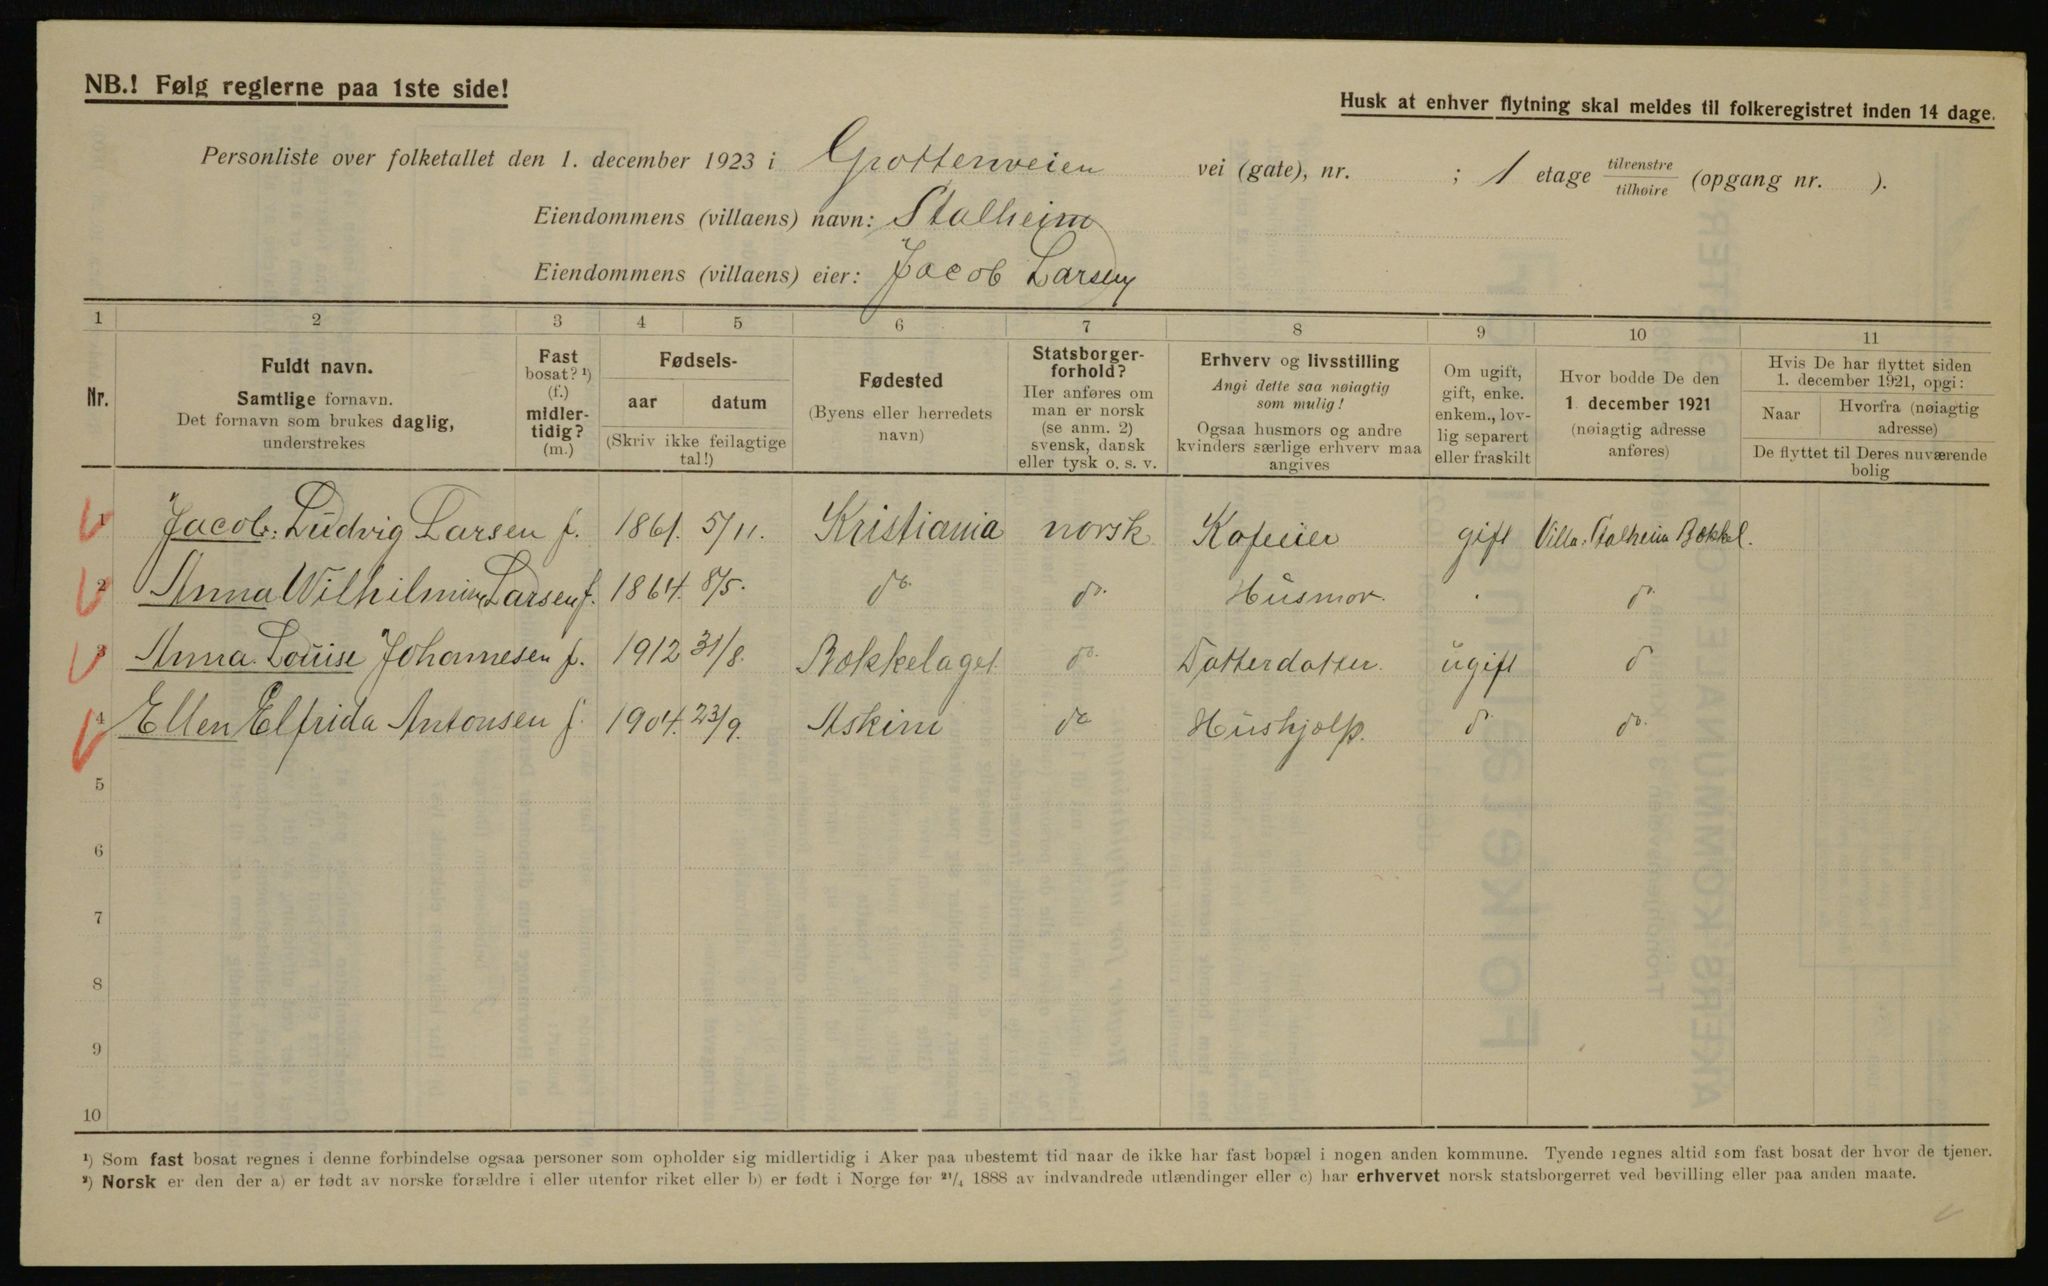 NB.! Følg reglerne paa 1ste side!
Husk at enhver flytning skal meldes til folkeregistret inden 14 dage.
Personliste over folketallet den 1. december 1923 i Grottenveien vei (gate), nr. ; 1 etage tilvenstre/tilhøire (opgang nr. ).
Eiendommens (villaens) navn: Stalheim
Eiendommens (villaens) eier: Jacob Larsen
1 2 3 4 5 6 7 8 9 10 11
Nr.
Fuldt navn.
Samtlige fornavn.
Det fornavn som brukes daglig,
understrekes
Fast
bosat? ¹)
(f.)
midler-
tidig?
(m.)
Fødsels-
aar datum
(Skriv ikke feilagtige
tal!)
Fødested
(Byens eller herredets
navn)
Statsborger-
forhold?
Her anføres om
man er norsk
(se anm. 2)
svensk, dansk
eller tysk o. s. v.
Erhverv og livsstilling
Angi dette saa nøiagtig
som mulig!
Ogsaa husmors og andre
kvinders særlige erhverv maa
angives
Om ugift,
gift, enke.
enkem., lov-
lig separert
eller fraskilt
Hvor bodde De den
1. december 1921
(nøiagtig adresse
anføres)
Hvis De har flyttet siden
1. december 1921, opgi:
Naar Hvorfra (nøiagtig
adresse)
De flyttet til Deres nuværende
bolig
1 Jacob: Ludvig Larsen f. 1861. 5/11. Kristiania norsk gift Villa: Stalheim Bækkel.
2 Anna Wilhilmine Larsen f. 1864. 8/5. do. do. Husmor. do.
3 Anna Louise Johannesen f. 1912 31/8. Bækkelaget do. Datterdatter. ugift d
4 Ellen Elfrida Antonsen f. 1904. 23/9. Askim do Hushjælp. d do.
5
6
7
8
9
10
¹) Som fast bosat regnes i denne forbindelse ogsaa personer som opholder sig midlertidig i Aker paa ubestemt tid naar de ikke har fast bopæl i nogen anden kommune. Tyende regnes altid som fast bosat der hvor de tjener.
²) Norsk er den der a) er født av norske forældre i eller utenfor riket eller b) er født i Norge før ²¹/₄ 1888 av indvandrede utlændinger eller c) har erhvervet norsk statsborgerret ved bevilling eller paa anden maate.